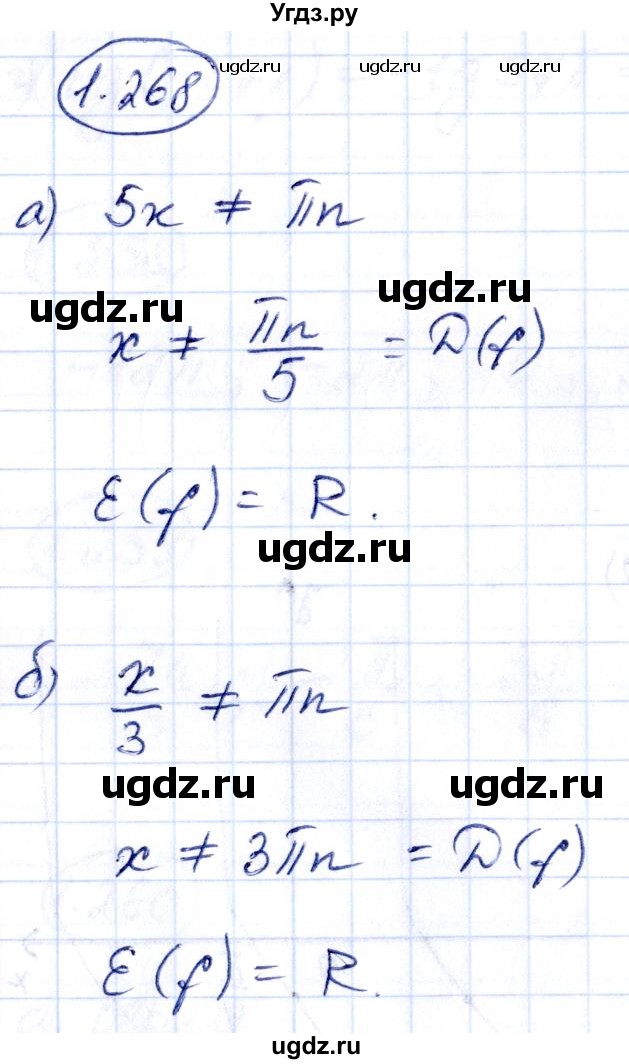 Угдз.ру
ugdz.ru ugdz.ru ugdz.ru
1.268
а) 5x ≠ πn
ugdz.ru ugdz.ru
x ≠ πn/5 = D(f)
E(f) = R.
ugdz.ru
б) x/3 ≠ πn
ugdz.ru ugdz.ru
x ≠ 3πn = D(f)
E(f) = R.
ugdz.ru